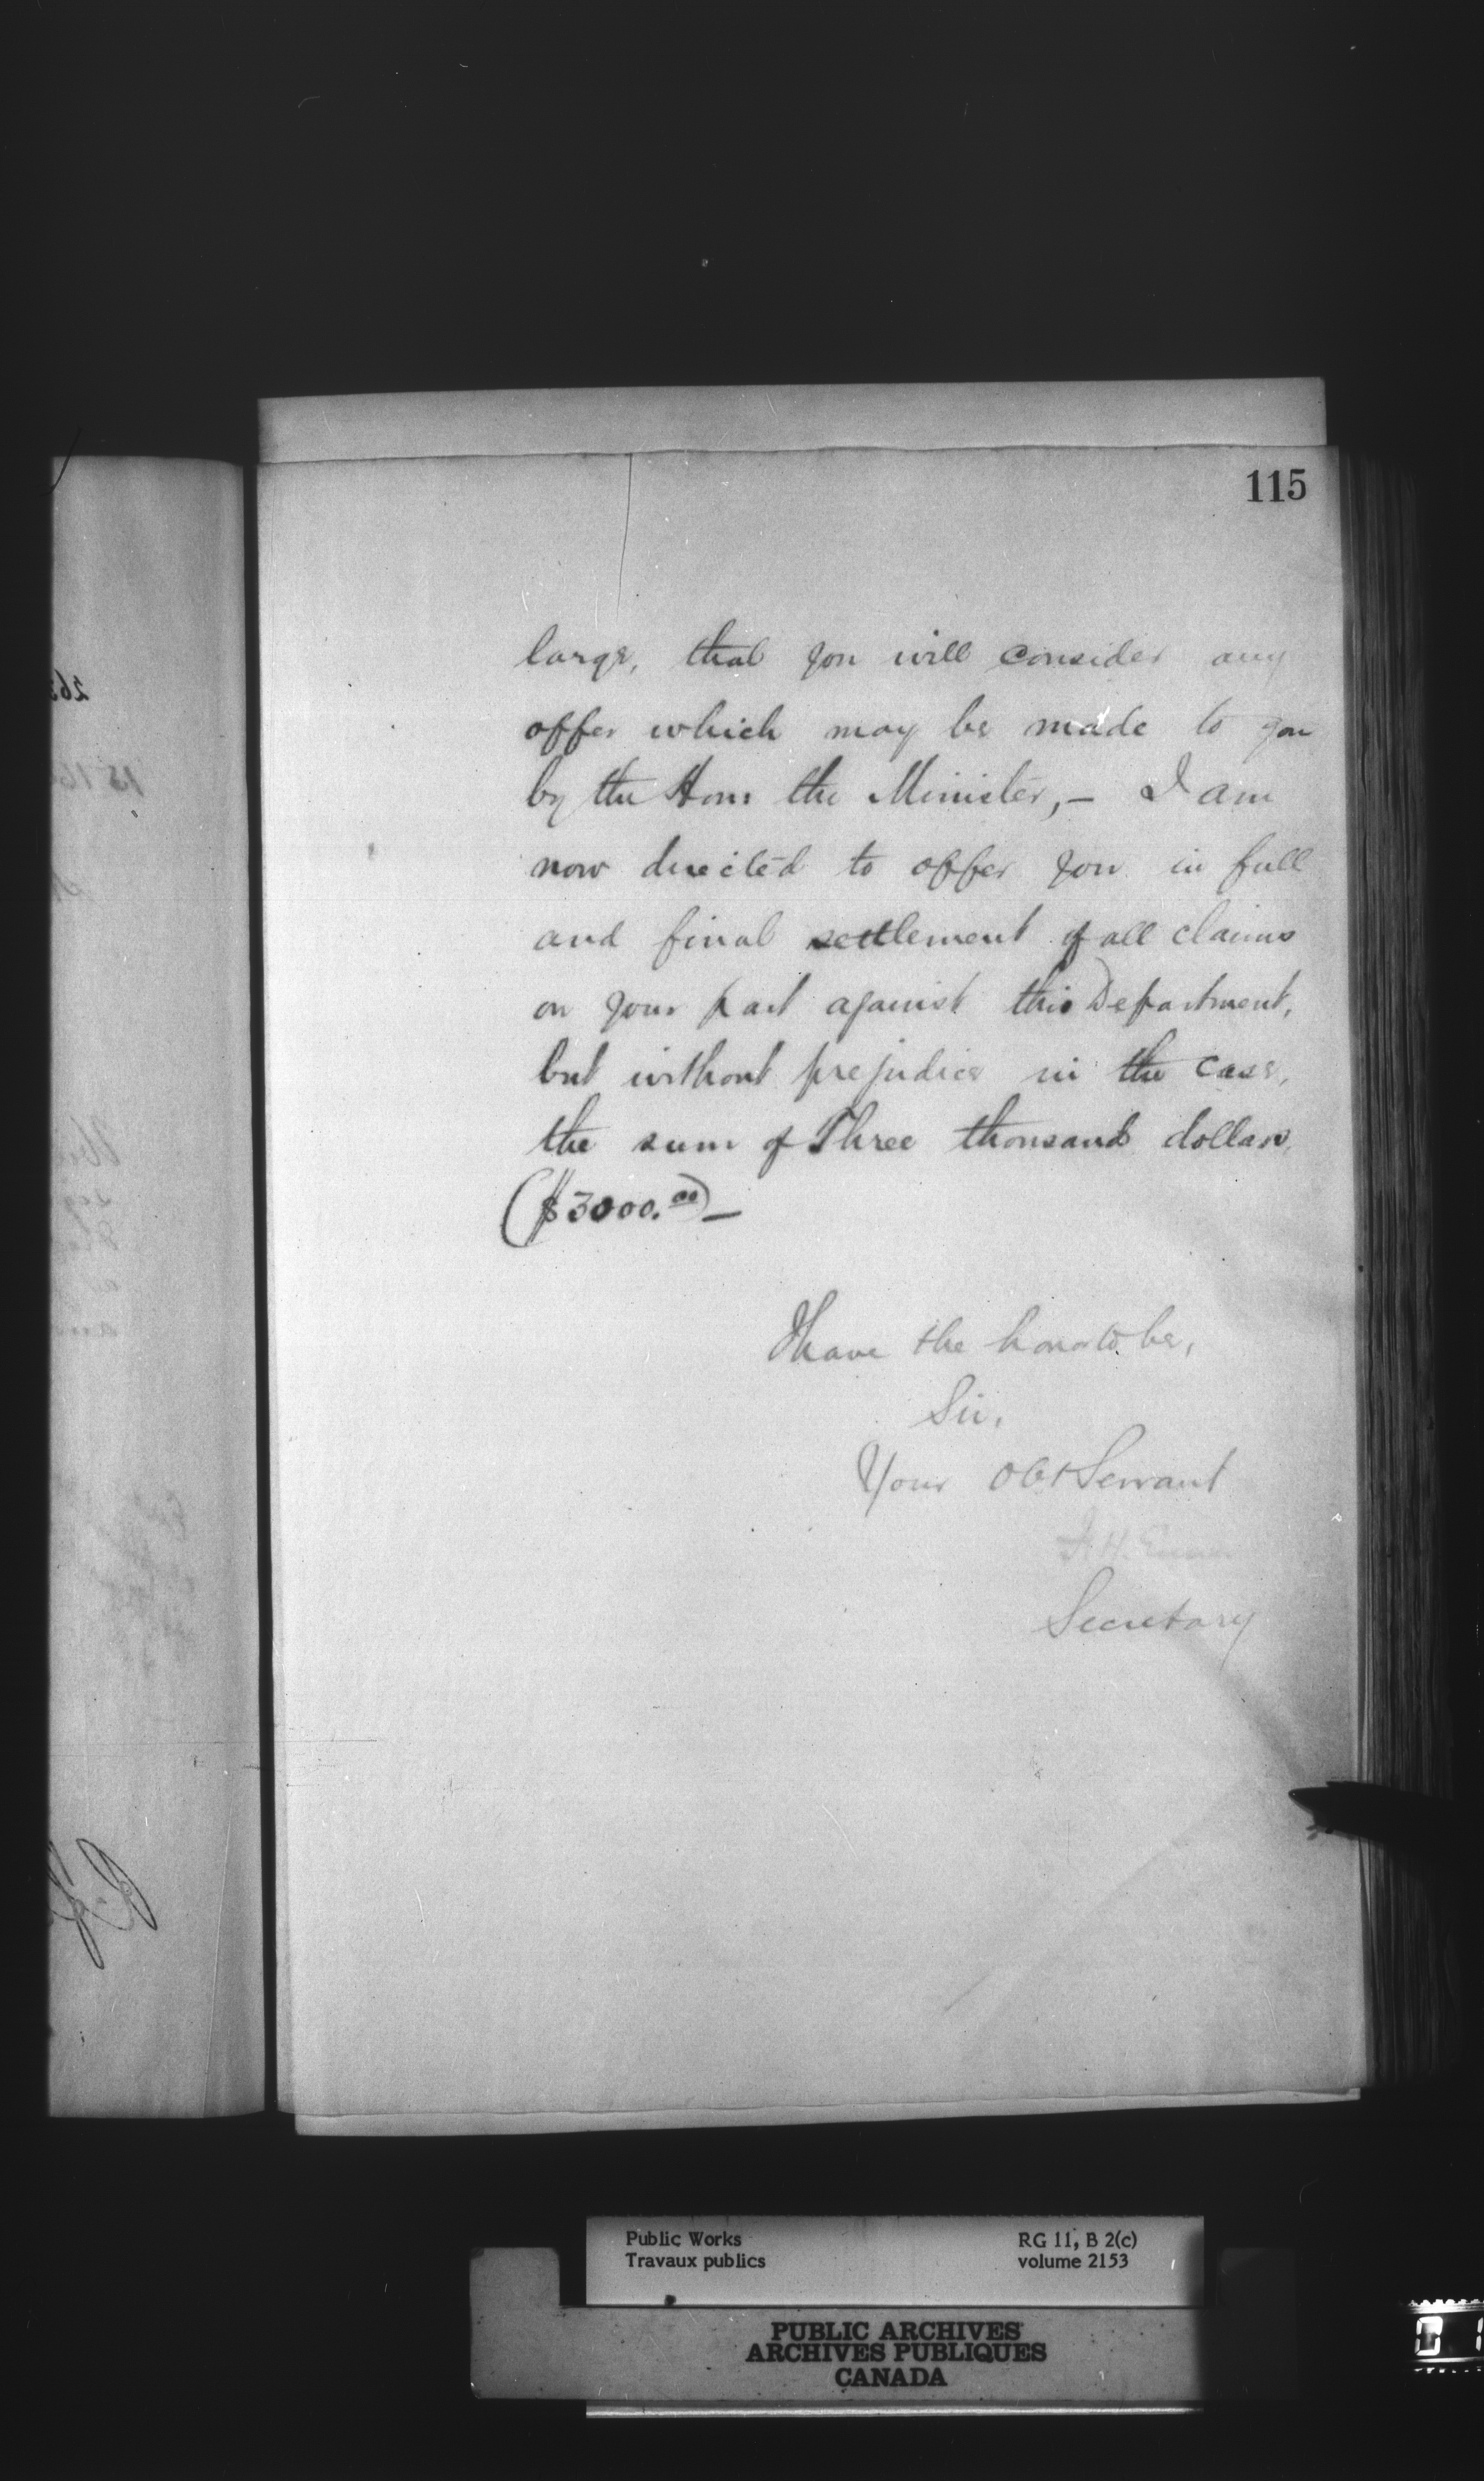 115
large, that you will consider any
offer which may be made to you
by the Hon: the Minister, – I am
now directed to offer you in full
and final settlement of all claims
on your part against this Department,
but without prejudice in the case,
the sum of Three thousand dollars,
($3000.00) –
I have the honor to be,
Sir,
Your Obt Servant
F. H. Ennis
Secretary
Public Works
Travaux publics
RG 11, B 2(c)
volume 2153
PUBLIC ARCHIVES
ARCHIVES PUBLIQUES
CANADA